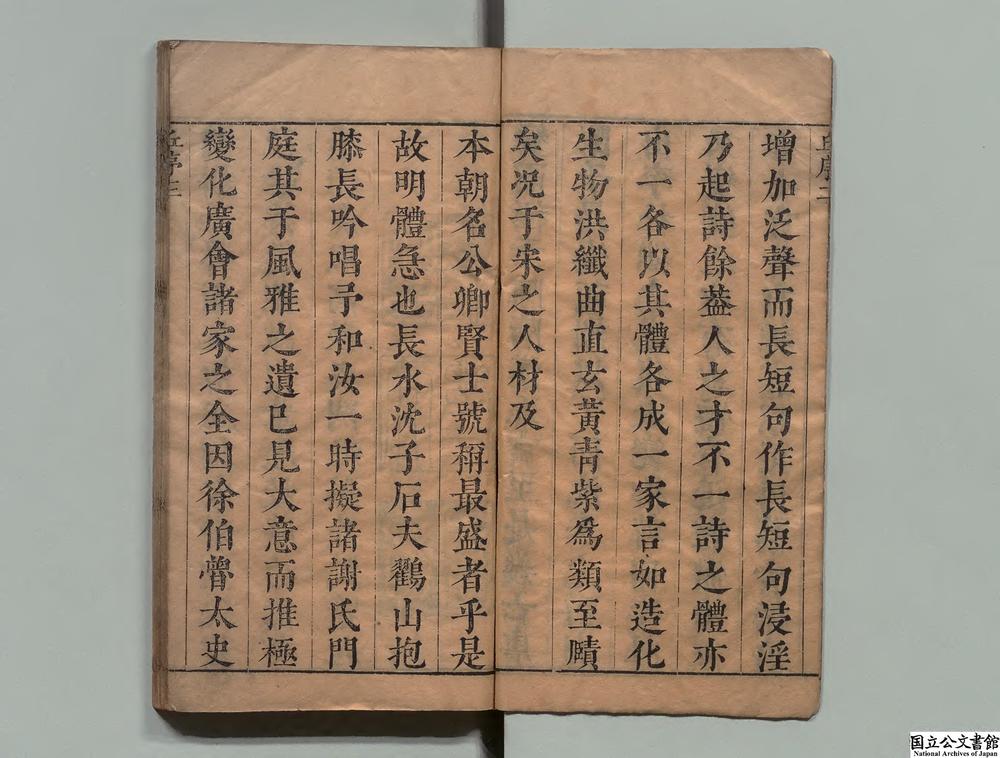 增加泛聲而長短句作長短句浸淫
乃起詩餘葢人之才不一詩之體亦
不一各以其體各成一家言如造化
生物洪纖曲直玄黃靑紫爲類至賾
矣况于宋之人材及
本朝名公卿賢士號稱最盛者乎是
故明體急也長水沈子石夫鸛山抱
膝長吟唱予和汝一時擬諸謝氏門
庭其于風雅之遺已見大意而推極
變化廣會諸家之全因徐伯魯太史
丘序三
国立公文書館
National Archives of Japan